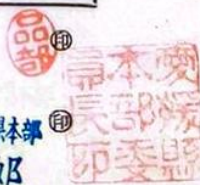 品部
㊞
県本部 ㊞
愛媛縣
本部委
員長印